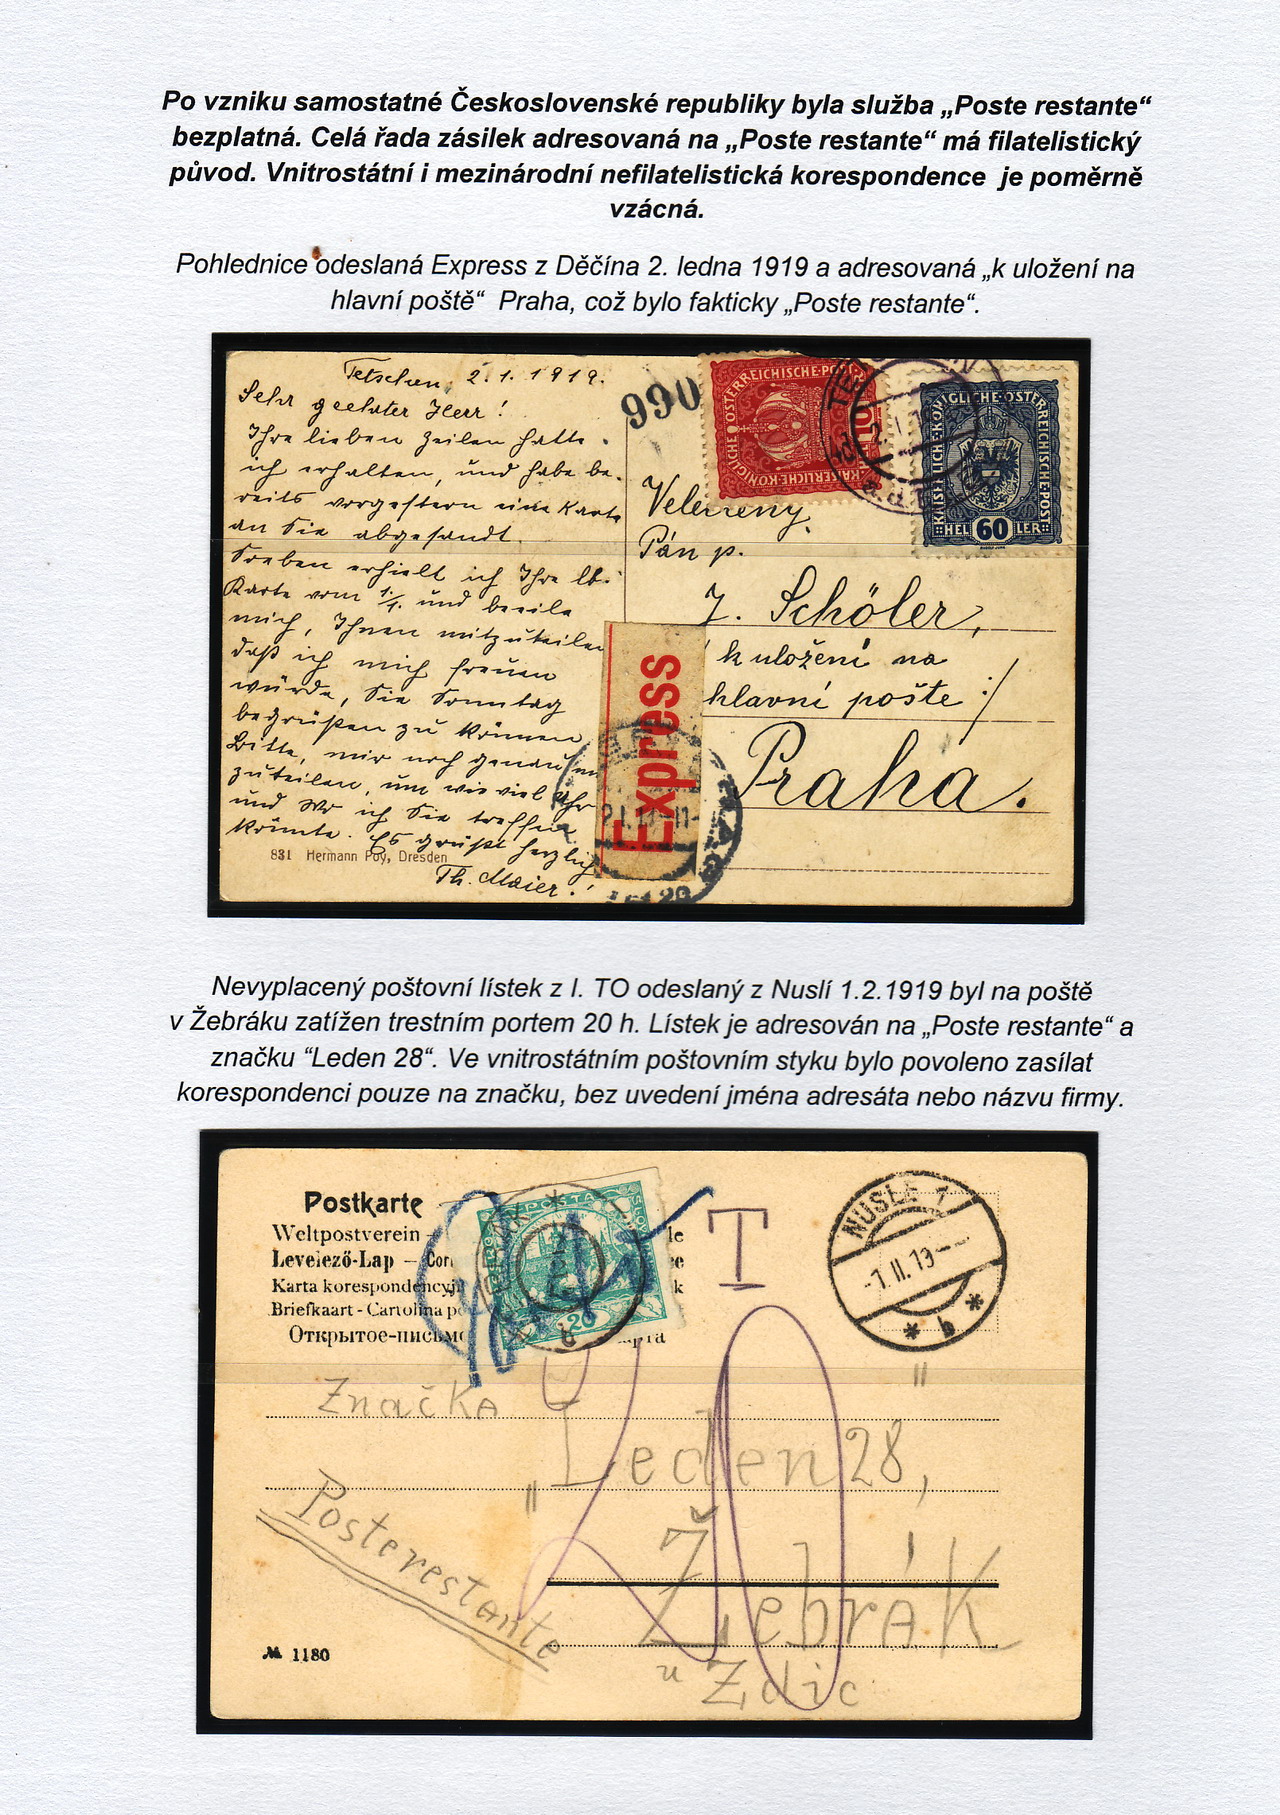 Po vzniku samostatné Československé republiky byla služba „Poste restante“
bezplatná. Celá řada zásilek adresovaná na „Poste restante“ má filatelistický
původ. Vnitrostátní i mezinárodní nefilatelistická korespondence je poměrně
vzácná.
Pohlednice odeslaná Express z Děčína 2. ledna 1919 a adresovaná „k uložení na
hlavní poště“ Praha, což bylo fakticky „Poste restante“.
Tetschen, 2.1.1919.
Sehr geehrter Herr!
Ihre lieben Zeilen hatte
ich erhalten, und habe be-
reits vorgestern eine Karte
an Sie abgesandt.
Soeben erhielt ich Ihre lb.
Karte vom 1./1. und beeile
mich, Ihnen mitzuteilen
daß ich mich freuen
würde, Sie Sonntag
begrüßen zu können
Bitte, mir noch genau
zuteilen, um wie viel Uhr
und wo ich Sie treffen
könnte. Es grüßt herzlich
Th. Maier!
831 Hermann Poy, Dresden
990
KAISERLICHE KÖNIGLICHE ÖSTERREICHISCHE POST
KAISERLICHE KÖNIGLICHE ÖSTERREICHISCHE POST
HELLER
60
Velectený
Pán p.
J. Schöler,
k uložení na
hlavní pošte :/
Praha.
Express
Nevyplacený poštovní lístek z I. TO odeslaný z Nuslí 1.2.1919 byl na poště
v Žebráku zatížen trestním portem 20 h. Lístek je adresován na „Poste restante“ a
značku “Leden 28“. Ve vnitrostátním poštovním styku bylo povoleno zasílat
korespondenci pouze na značku, bez uvedení jména adresáta nebo názvu firmy.
Postkarte
Weltpostverein –
Levelező-Lap – Corr
Karta korespondencyj
Briefkaart - Cartolina po
Открытое-письмо
POŠTA
20
T
NUSLE 1
-1.II.19-
* b *
20
Značka
„Leden 28,"
Poste restante
Žebrák
u Zdic
№ 1180